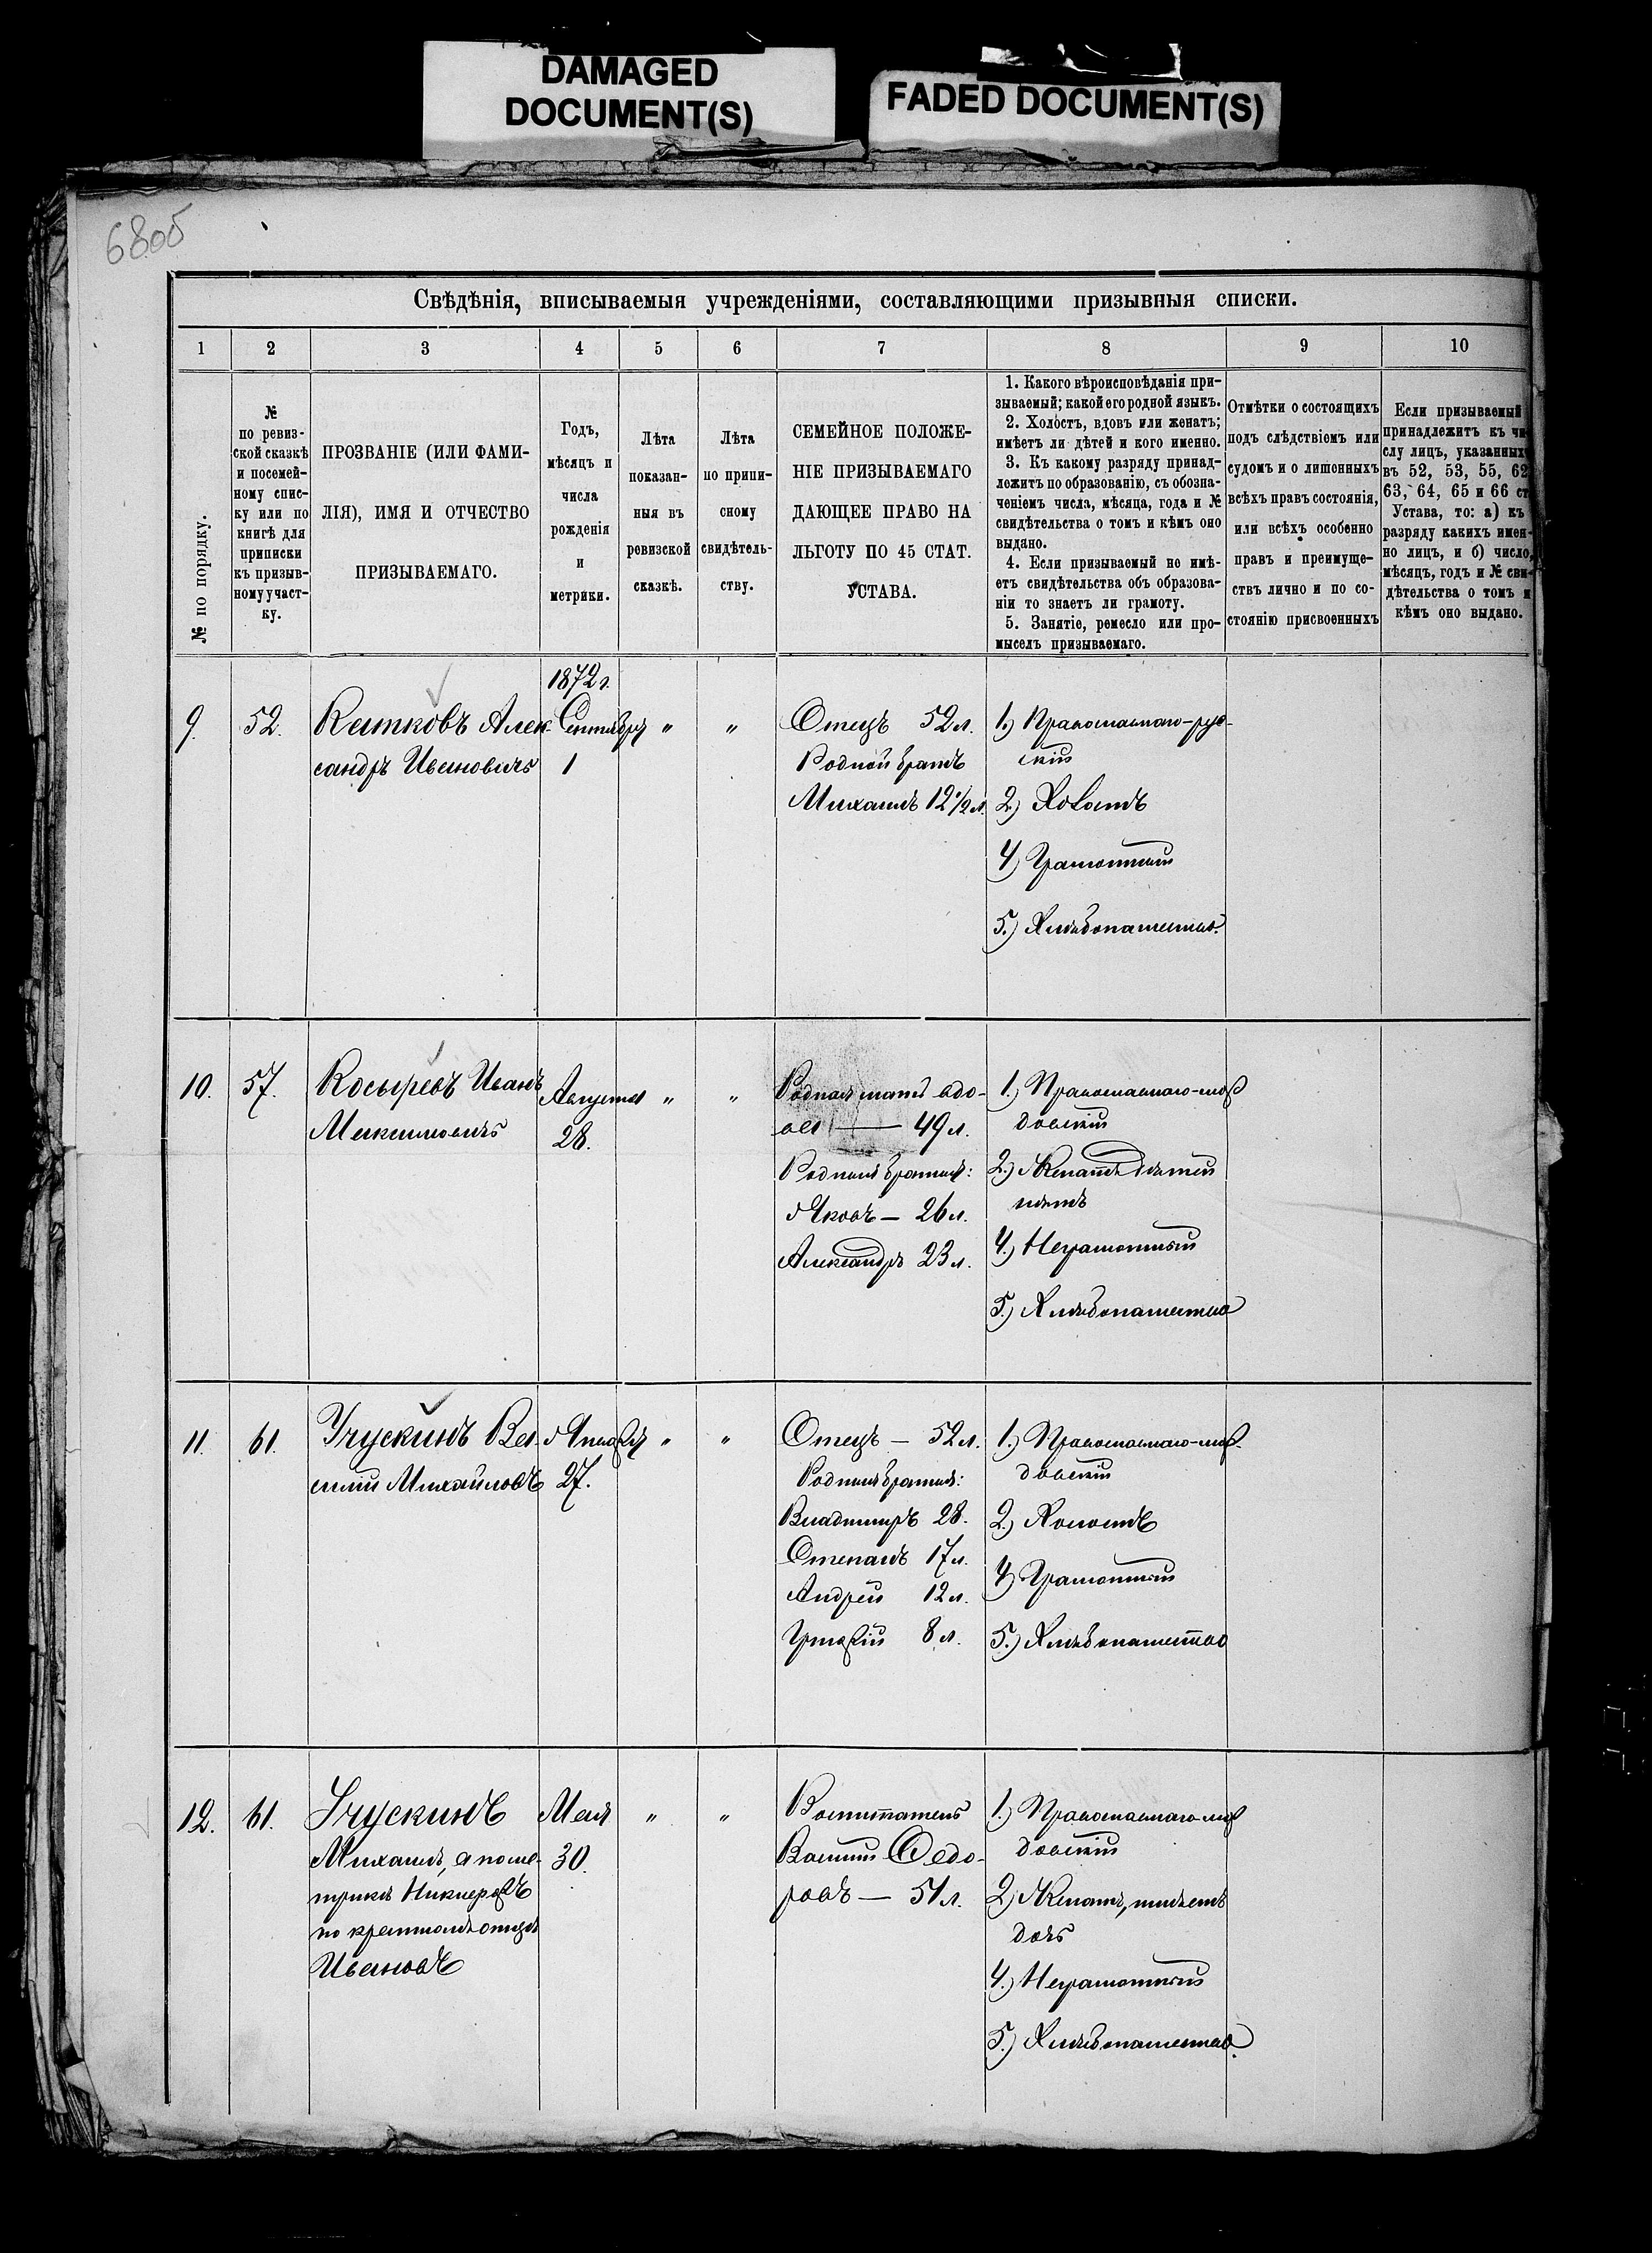 DAMAGED
DOCUMENT(S)
FADED DOCUMENT(S)
68об
Свѣдѣнія, вписываемыя учрежденіями, составляющими призывныя списки.
1 2 3 4 5 6 7 8 9 10
№ по порядку.
№
по ревиз-
ской сказкѣ
и посемей-
ному спис-
ку или по
книгѣ для
приписки
къ призыв-
ному участ-
ку.
ПРОЗВАНІЕ (ИЛИ ФАМИ-
ЛІЯ), ИМЯ И ОТЧЕСТВО
ПРИЗЫВАЕМАГО.
Годъ,
мѣсяцъ и
числа
рожденія
и
метрики.
Лѣта
показан-
ныя въ
ревизской
сказкѣ.
Лѣта
по припи-
сному
свидѣтель-
ству.
СЕМЕЙНОЕ ПОЛОЖЕ-
НІЕ ПРИЗЫВАЕМАГО
ДАЮЩЕЕ ПРАВО НА
ЛЬГОТУ ПО 45 СТАТ.
УСТАВА.
1. Какого вѣроисповѣданія при-
зываемый; какой его родной языкъ.
2. Холостъ, вдовъ или женатъ;
имѣетъ ли дѣтей и кого именно.
3. Къ какому разряду принад-
лежитъ по образованію, съ обозна-
ченіемъ числа, мѣсяца, года и №
свидѣтельства о томъ и кѣмъ оно
выдано.
4. Если призываемый не имѣ-
етъ свидѣтельства объ образова-
ніи то знаетъ ли грамоту.
5. Занятіе, ремесло или про-
мыселъ призываемаго.
Отмѣтки о состоящихъ
подъ слѣдствіемъ или
судомъ и о лишенныхъ
всѣхъ правъ состоянія,
или всѣхъ особенно
правъ и преимуще-
ствъ лично и по со-
стоянію присвоенныхъ
Если призываемый
принадлежитъ къ чи-
слу лицъ, указанныхъ
въ 52, 53, 55, 62
63, 64, 65 и 66 ст
Устава, то: а) къ
разряду какихъ имен-
но лицъ, и б) число,
мѣсяцъ, годъ и № сви-
дѣтельства о томъ и
кѣмъ оно выдано.
1872 г.
9. 52. Алек- Сентября " "
сандръ Ивановичъ 1
Отецъ 52 л.
Родной братъ
Михаилъ 12 1/2 л.
1.) Православнаго-рус-
скій
2.) Холостъ
4.) Грамотный
5.) Хлѣбопашество.
10. 57. Косыревъ Иванъ Августа " "
Максимовичъ 28.
Родная мать вдо-
ва — 49 л.
Родныя братья:
Яковъ — 26 л.
Александръ 23 л.
1.) Православнаго-мор
довскій
2.) Женатъ дѣтей
нѣтъ
4.) Неграмотный
5.) Хлѣбопашество
11. 61. Учускинъ Ва- Января " "
силій Михайловъ 27.
Отецъ — 52 л.
Родныя братья:
Владимиръ 28.
Степанъ 17 л.
Андрей 12 л.
8 л.
1.) Православнаго-мор-
довскій
2.) Холостъ
4) Грамотный
5.) Хлѣбопашество
12. 61. Учускинъ Мая " "
Михаилъ, а по ме- 30.
трикѣ Никифоръ
по крестному отцу
Ивановъ
Воспитатель
Василій Ѳедо-
ровъ — 51 л.
1.) Православнаго-мор
довскій
2.) Женатъ, имѣетъ
дочь
4.) Неграмотный
5.) Хлѣбопашество.